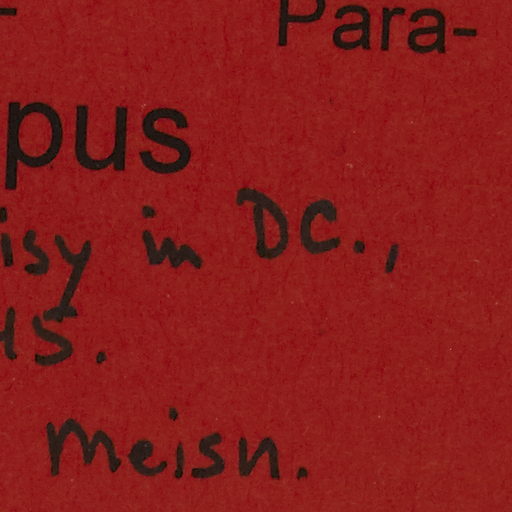 Para-
pus
isy in DC.,
45.
Meisn.